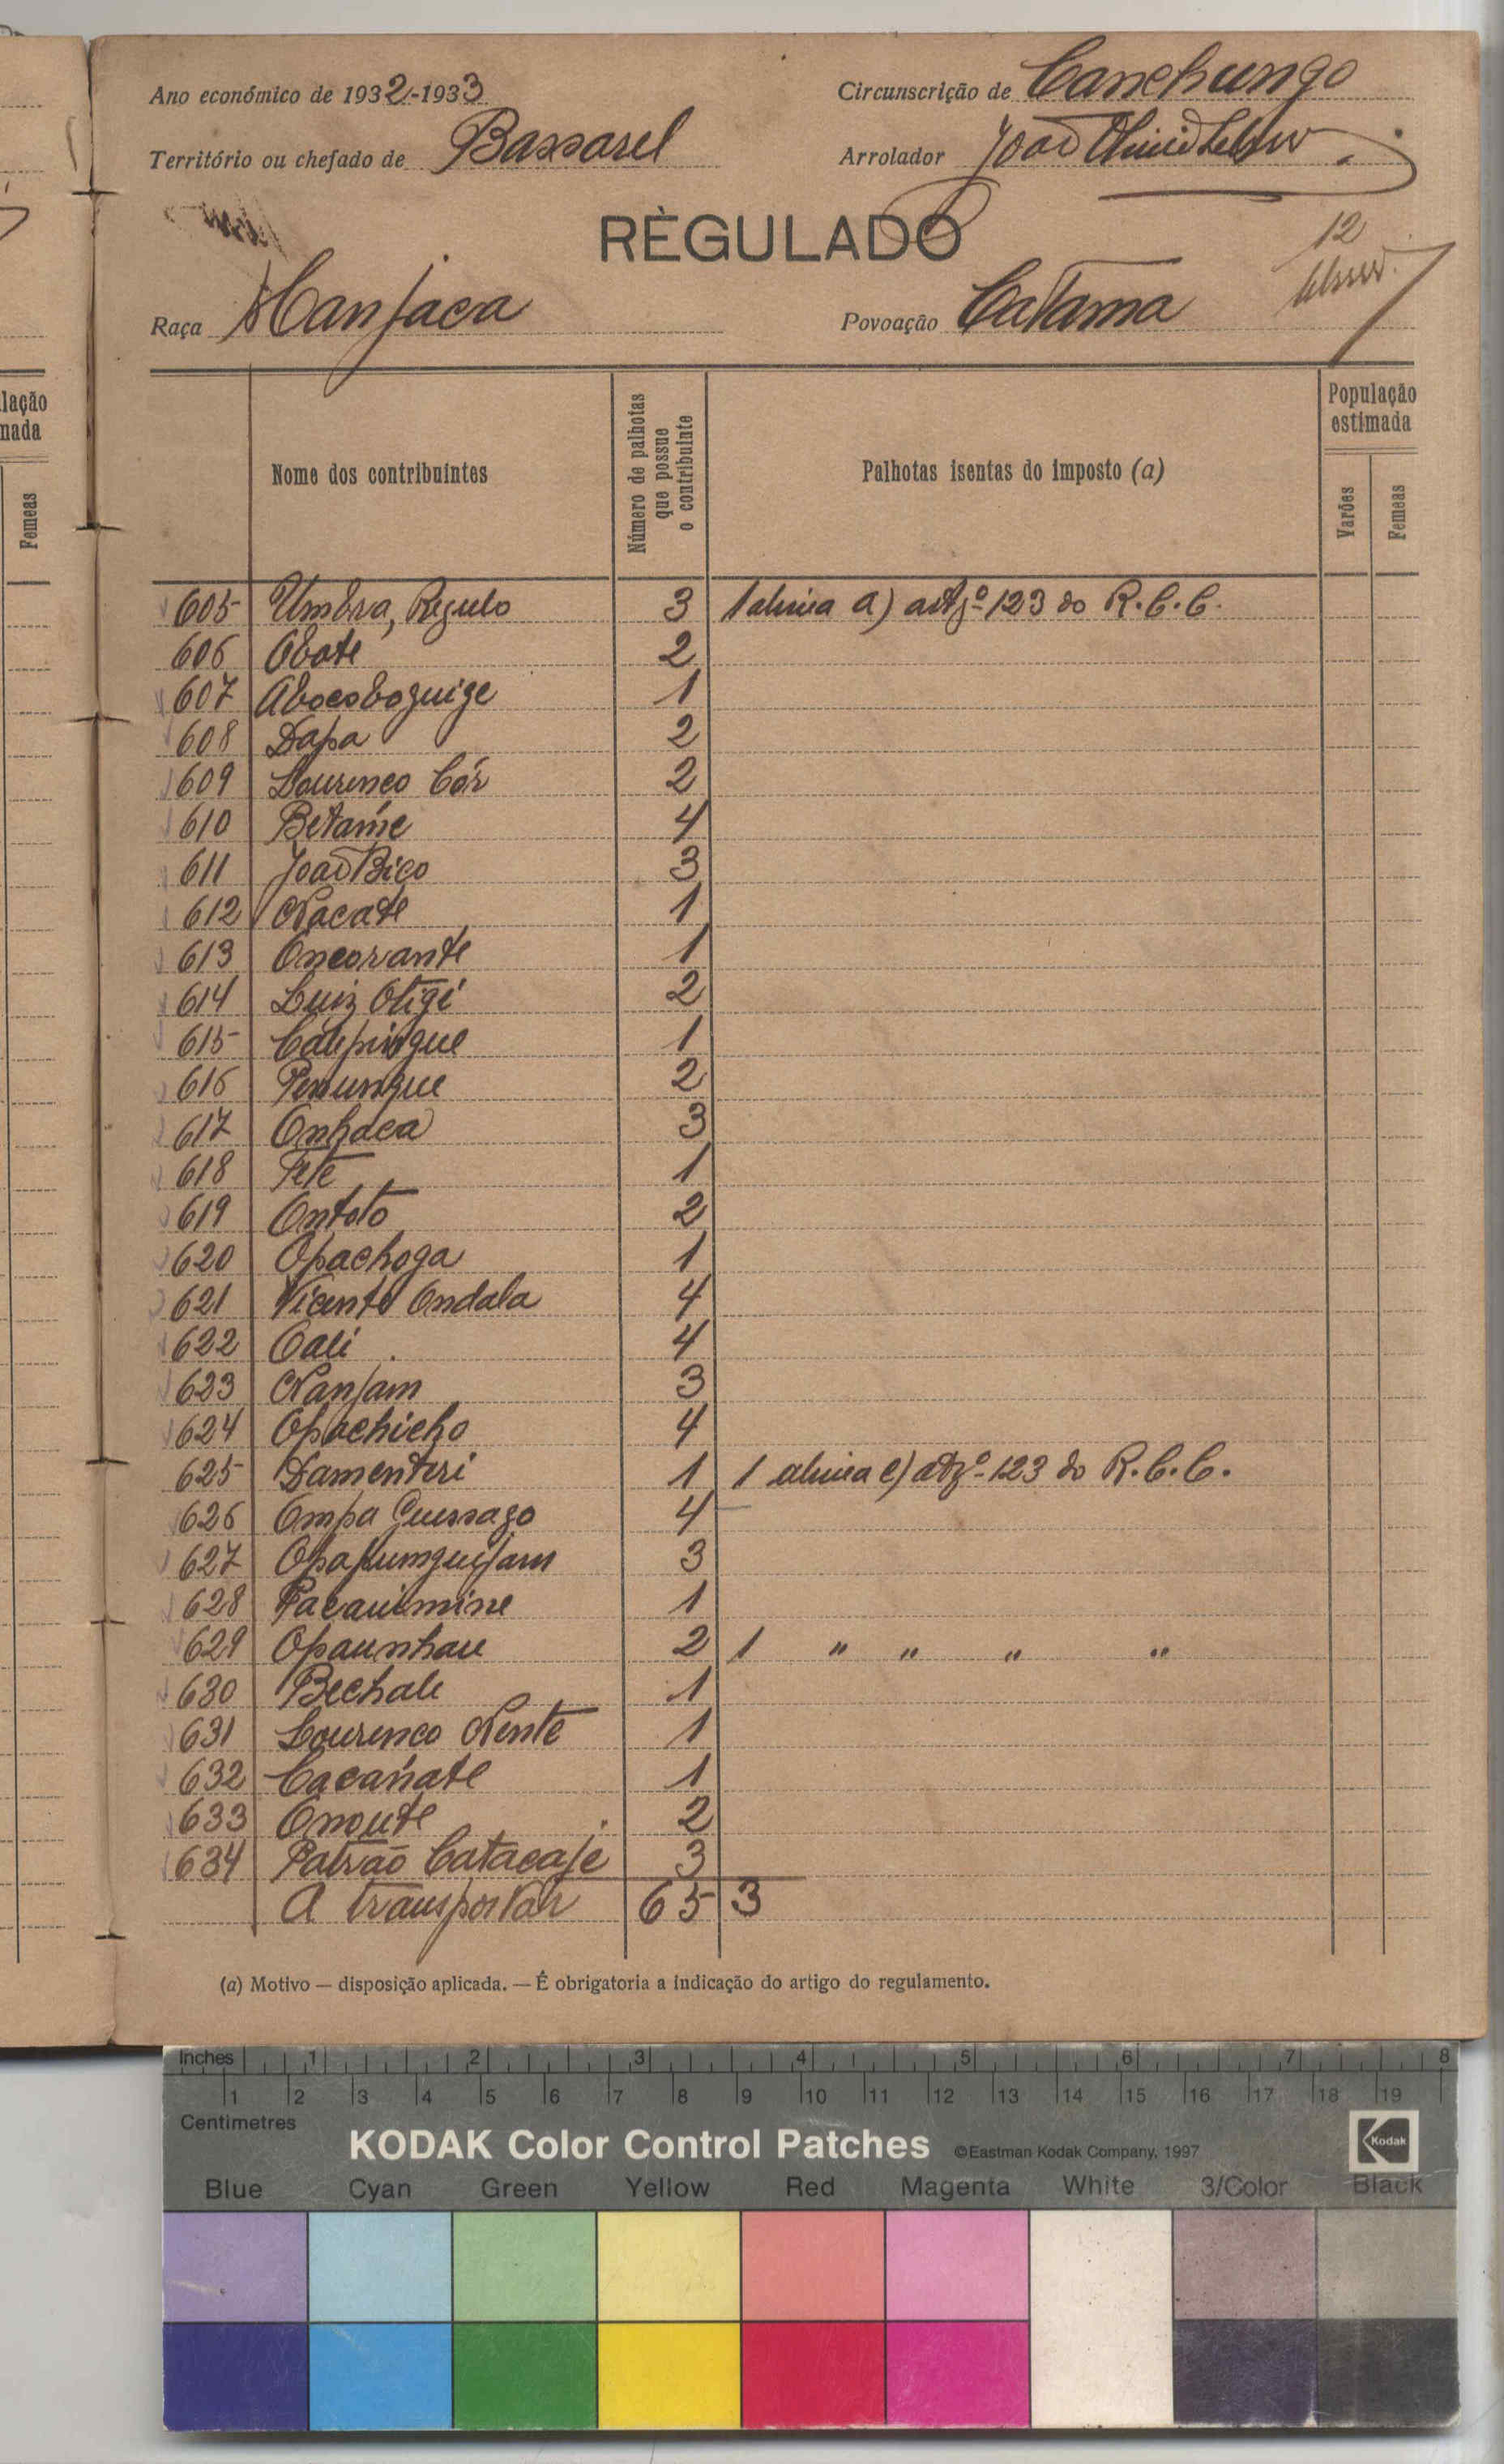 lação
nada
Femeas
Ano económico de 1932-1933
Circunscrição de Canchungo
Território ou chefado de Bassarel
Arrolador João
RÈGULADO
12
Raça Manjaca
Povoação Catama
Nome dos contribuintes
Número de palhotas que possue o contribuinte
Palhotas isentas do imposto (a)
População estimada
Varões
Femeas
605 Umbra, Regulo 3 1 alinea a) artgº 123 do R.C.C.
606 Obote 2
607 Abocoboguige 1
608 Dapa 2
609 Lourenco Cór 2
610 Betame 4
611 João Bico 3
612 Nacate 1
613 Oncorante 1
614 Luiz Otigi 2
615 1
616 Penungue 2
617 Onhaca 3
618 Tete 1
619 Ontoto 2
620 Opachoga 1
621 Vicente Ondala 4
622 Cali 4
623 Nanjam 3
624 Opachicho 4
625 Damenteri 1 1 alinea e) artgº 123 do R.C.C.
626 Ompa Gussago 4
627 3
628 Pacauimine 1
629 Opaunhau 2 1 " " " "
630 Bechale 1
631 Lourenco Nente 1
632 Cacanate 1
633 Onoute 2
634 Patrão Catacaje 3
A transportar 65 3
(a) Motivo — disposição aplicada. — É obrigatoria a indicação do artigo do regulamento.
Inches 1 2 3 4 5 6 7 8
1 2 3 4 5 6 7 8 9 10 11 12 13 14 15 16 17 18 19
Centimetres
KODAK Color Control Patches ©Eastman Kodak Company, 1997 Kodak
Blue Cyan Green Yellow Red Magenta White 3/Color Black